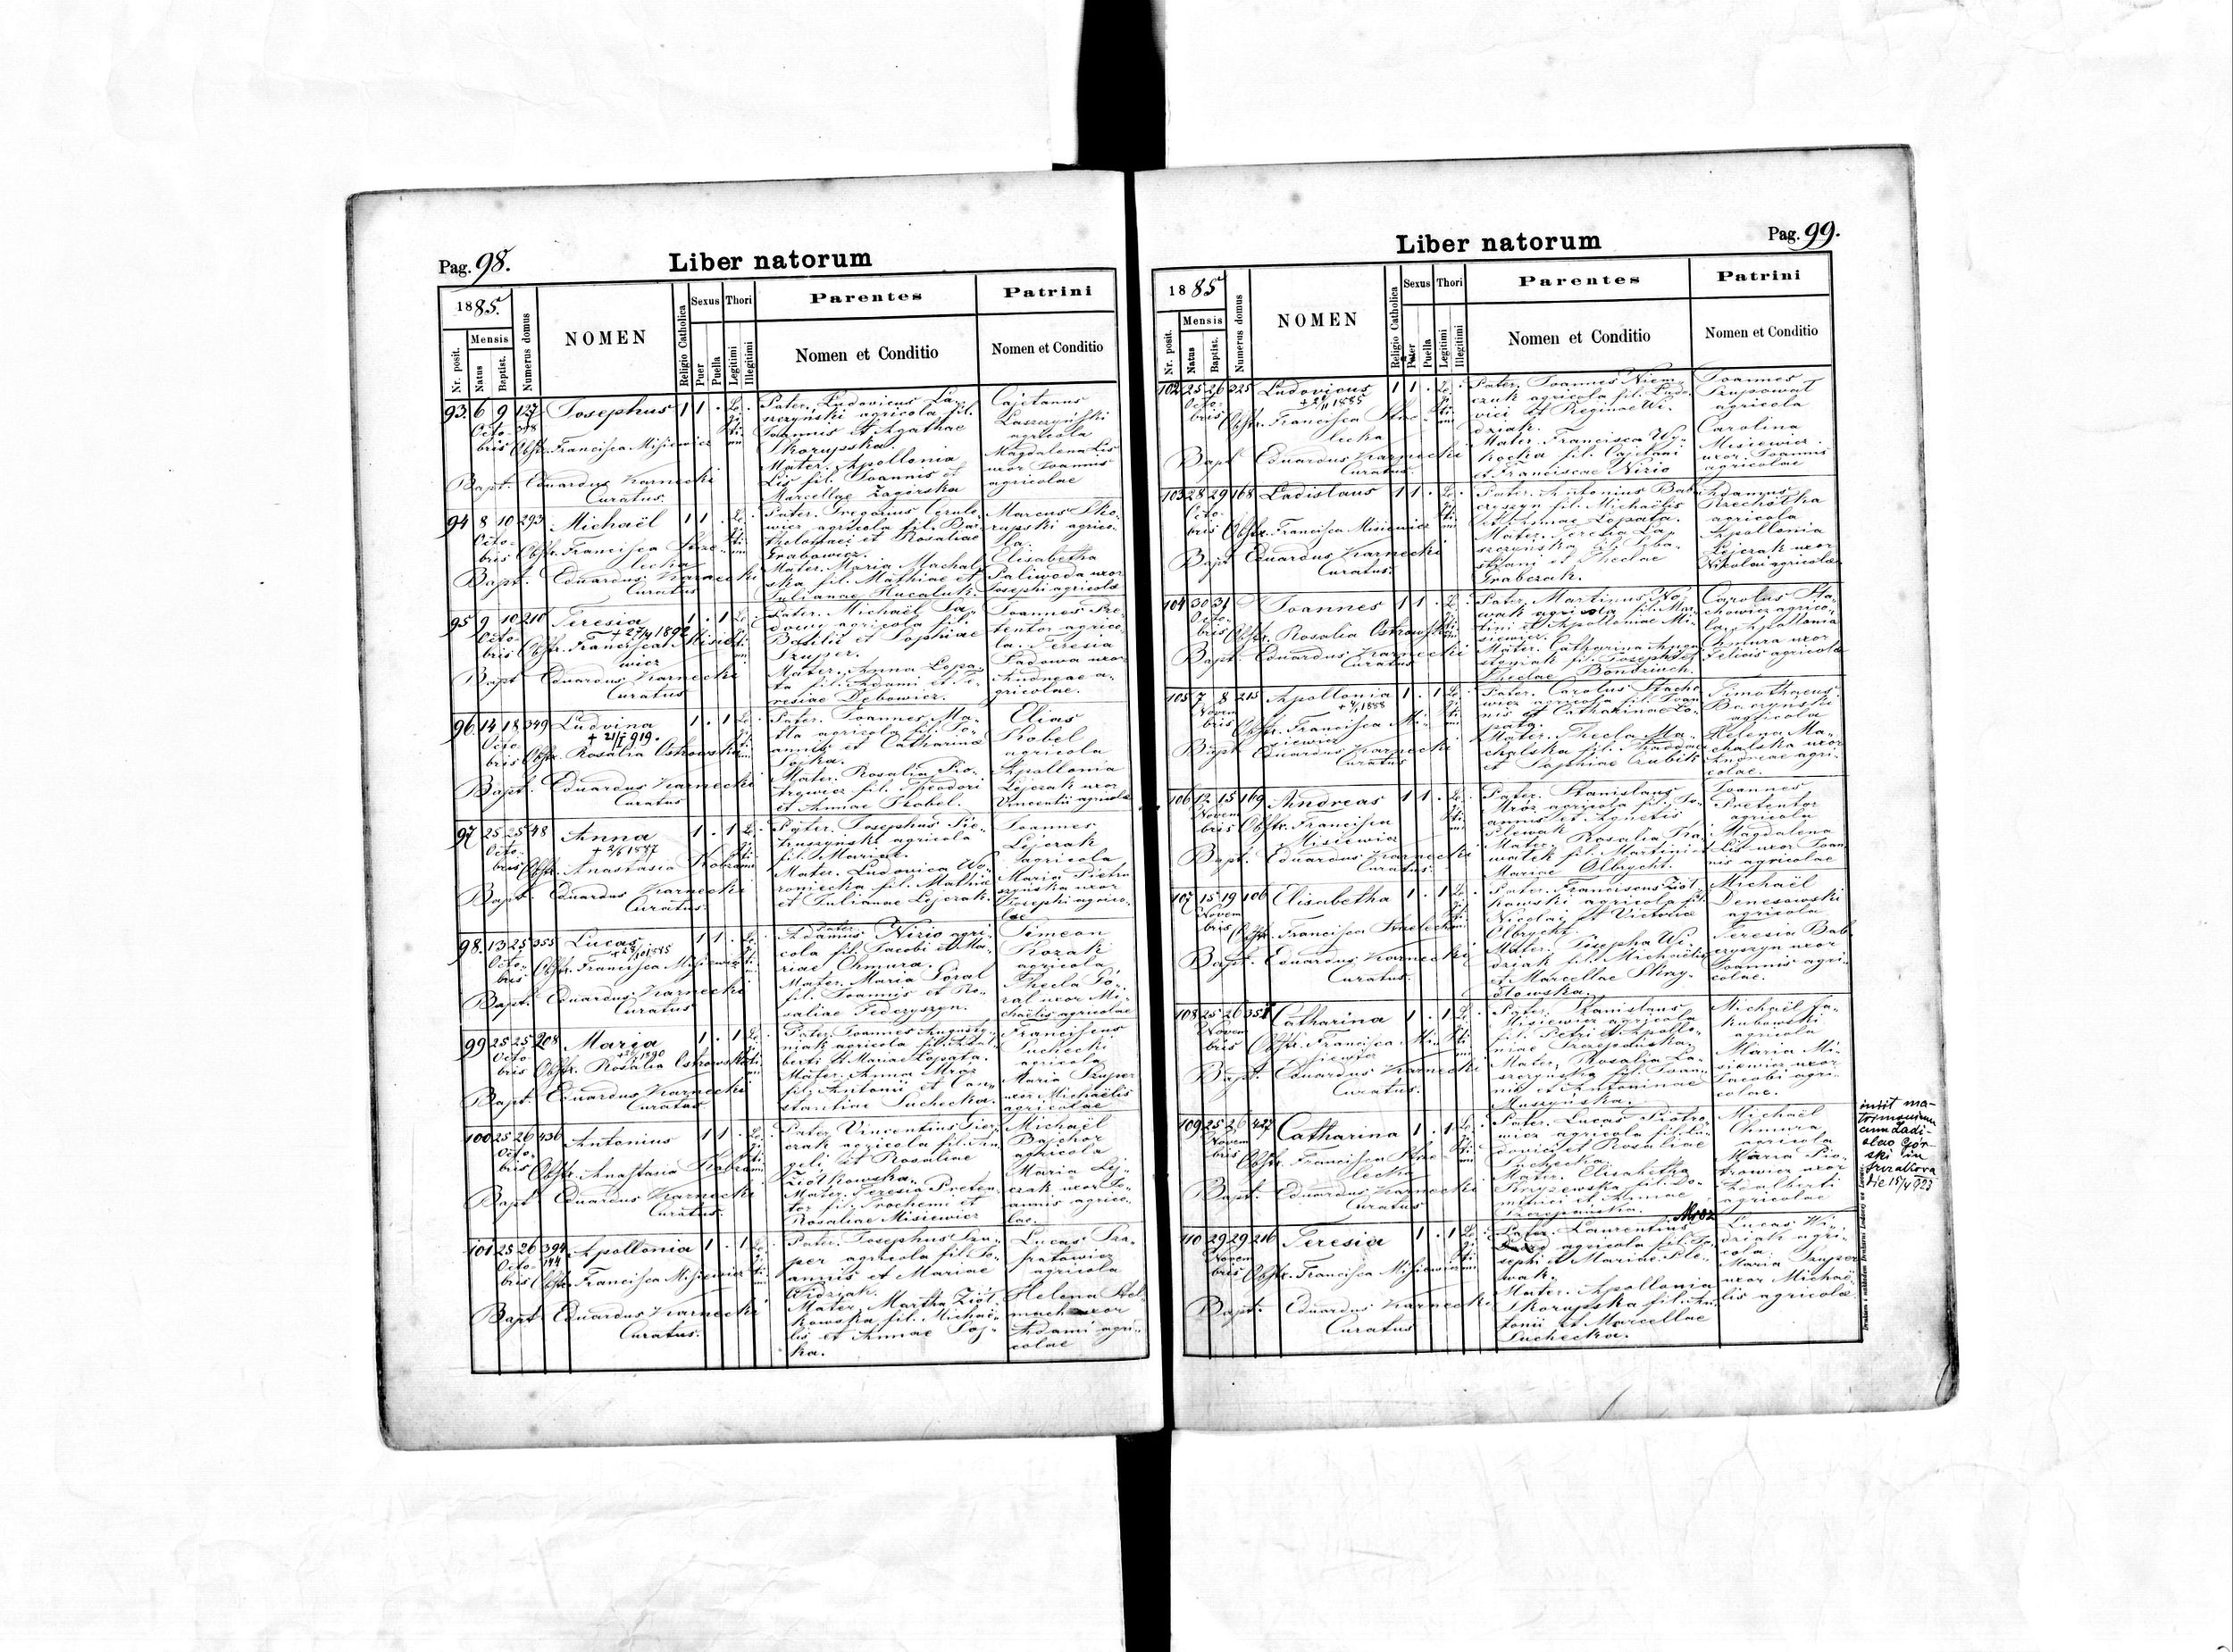 Pag. 98.
Liber natorum
1885.
Nr. posit.
Mensis
Natus
Baptist.
Numerus domus
NOMEN
Religio Catholica
Sexus
Puer
Puella
Thori
Legitimi
Illegitimi
Parentes
Nomen et Conditio
Patrini
Nomen et Conditio
93. 6 9 127 Josephus 1 1 .
Octo-
bris Obstr. Francisca Misiewicz
Bapt. Eduardus Karnecki
Curatus.
Pater. Ludovicus La-
szczynski agricola fil.
Joannis et Agathae
Skorupska.
Mater. Apollonia
Lis fil. Joannis et
Marcellae Zagórska
Cajetanus
Laszczyński
agricola
Magdalena Lis
uxor Joannis
agricolae
94 8 10 293 Michaël 1 1 .
Octo-
bris Obstr. Francisca Strze-
lecka
Bapt. Eduardus Karnecki
Curatus
Pater. Gregorius
agricola fil. Bar-
tholomaei et Rosaliae
Grabowicz.
Mater. Maria Machal-
ska fil. Mathiae et
Julianae Hucaluk.
Marcus Sko-
rupski agrico-
la.
Elisabetha
Paliwoda uxor
Josephi agricolae
95 9 10 210 Teresia 1 . 1
Octo-
bris Obstr. Francisca Misie-
wicz
Bapt Eduardus Karnecki
Curatus
Pater. Michaël
agricola fil.
Basilii et Sophiae
Szuper.
Mater. Anna Lopa-
ta fil. Adami et Te-
resiae Dębowicz.
Joannes Pre-
tentor agrico-
la. Teresia
Sadowa uxor
Andreae a-
gricolae.
96 14 18 349 Ludvina 1 . 1
+ 21/I 919.
Octo-
bris Obstr. Rosalia Ostrowska
Bapt. Eduardus Karnecki
Curatus
Pater. Joannes Ma-
agricola fil. Jo-
annis et Catharinae
Sojka.
Mater. Rosalia Pio-
trowicz fil. Theodori
et Annae Skobel.
Elias
Skobel
agricola
Apollonia
Lejczak uxor
Vincentii agricolae
97 25 25 48 Anna 1 . 1
+ 2/6 1887
Octo-
bris Obstr. Anastasia
Bapt. Eduardus Karnecki
Curatus.
Pater. Josephus Pie-
truszynski agricola
fil. Mariae.
Mater. Ludovica Wo-
roniecka fil. Mathiae
et Julianae Lejczak.
Joannes
Lejczak
agricola
Maria Pietru-
szynska uxor
Josephi agrico-
lae
98. 13 25 355 Lucas 1 1 .
Octo-
bris Obstr. Francisca Misiewicz
Bapt. Eduardus Karnecki
Curatus
Pater
Adamus Nizio agri-
cola fil. Jacobi et Ma-
riae Chmura.
Mater. Maria Góral
fil. Joannis et Ro-
saliae Federyszyn.
Simeon
Kozak
agricola
Thecla Gó-
ral uxor Mi-
chaëlis agricolae
99 25 25 208 Maria 1 . 1
Octo-
bris Obstr. Rosalia Ostrowska
Bapt. Eduardus Karnecki
Curatus
Pater Joannes Augusty-
niak agricola fil. Adal-
berti et Mariae Lopata.
Mater. Anna Mroz
fil. Antonii et Con-
stantiae Suchecka.
Franciscus
Suchecki
agricola
Maria Szuper
uxor Michaëlis
agricolae
100 25 26 436 Antonius 1 1 .
Octo-
bris
Obstr. Anastasia
Bapt Eduardus Karnecki
Curatus.
Pater Vincentius
agricola fil. An-
geli et Rosaliae
Ziółkowska.
Mater. Teresia Preten-
tor fil. Trochemi et
Rosaliae Misiewicz
Michaël
Bajchor
agricola
Maria Lej-
czak uxor Jo-
annis agrico-
lae.
101 25 26 394 Apollonia 1 . 1
144
Octo-
bris Obstr. Francisca Misiewicz
Bapt Eduardus Karnecki
Curatus.
Pater. Josephus Szu-
per agricola fil. Jo-
annis et Mariae
Widziak.
Mater. Martha Ziół-
kowska fil. Michaë-
lis et Annae Soj-
ka.
Lucas
agricola
Helena
uxor
Adami agri-
colae
Pag. 99.
Liber natorum
1885.
Nr. posit.
Mensis
Natus
Baptist.
Numerus domus
NOMEN
Religio Catholica
Sexus
Puer
Puella
Thori
Legitimi
Illegitimi
Parentes
Nomen et Conditio
Patrini
Nomen et Conditio
102 25 26 325 Ludovicus 1 1 .
Octo-
bris Obstr. Francisca Strze-
lecka
Bapt Eduardus Karnecki
Curatus
Pater. Joannes Niem-
czuk agricola fil. Ludo-
vici et Reginae Wi-
dziak.
Mater. Francisca Wy-
socka fil. Cajetani
et Franciscae Nizio
Joannes
agricola
Carolina
Misiewicz
uxor Joannis
agricolae
103 28 29 168 Ladislaus 1 1 .
Octo-
bris Obstr. Francisca Misiewicz
Bapt Eduardus Karnecki
Curatus.
Pater. Antonius Bab-
czyszyn fil. Michaëlis
et Annae Lopata.
Mater. Teresia La-
szczynska fil. Seba-
stiani et Theclae
Grabczak.
Adamus
Rzechotka
agricola
Apollonia
Lejczak uxor
Nicolai agricolae
104 30 31 Joannes 1 1 .
Octo-
bris Obstr. Rosalia Ostrowska
Bapt. Eduardus Karnecki
Curatus
Pater. Martinus No-
wak agricola fil. Mar-
tini et Apolloniae Mi-
siewicz.
Mater. Catharina Augu-
styniak fil. Josephi et
Theclae
Carolus Sta-
chowicz agrico-
la, Apollonia
Chmura uxor
Felicis agricolae
105 7 8 215 Apollonia 1 . 1
Novem
bris Obstr. Francisca Mi-
siewicz
Bapt Eduardus Karnecki
Curatus
Pater. Carolus Stacho-
wicz agricola fil. Joan-
nis et Catharinae Lo-
pata.
Mater. Thecla Ma-
chalska fil.
et Sophiae Cubik
Timotheus
agricola
Helena Ma-
chalska uxor
Andreae agri-
colae.
106 12 15 169 Andreas 1 1 .
Novem
bris Obstr. Francisca
Misiewicz
Bapt. Eduardus Karnecki
Curatus.
Pater. Stanislaus
Mroz agricola fil. Jo-
annis et Agnetis
Plewak
Mater. Rosalia
fil. Martini et
Mariae Olbrycht.
Joannes
Pretentor
agricola
Magdalena
Lis uxor Joan-
nis agricolae
107 15 19 106 Elisabetha 1 . 1
Novem
bris Obstr. Francisca Strzelecka
Bapt. Eduardus Karnecki
Curatus.
Pater. Franciscus Ziół-
kowski agricola fil.
Nicolai et Victoriae
Olbrycht.
Mater. Josepha Wi-
dziak fil. Michaëlis
et Marcellae
Michaël
Denesowski
agricola
Teresia Bab-
czyszyn uxor
Joannis agri-
colae.
108 25 26 351 Catharina 1 . 1
Novem
bris Obstr. Francisca Mi-
siewicz
Bapt. Eduardus Karnecki
Curatus.
Pater. Stanislaus
Misiewicz agricola
fil. Petri et Apollo-
niae Szczepańska.
Mater. Rosalia La-
szczynska fil. Joan-
nis et Antoninae
Muszyńska.
Michaël Ja-
kubowski
agricola
Maria Mi-
siewicz uxor
Jacobi agri-
colae.
109 25 26 427 Catharina 1 . 1
Novem
bris
Obstr. Francisca Strze-
lecka
Bapt. Eduardus Karnecki
Curatus
Pater. Lucas Piotro-
wicz agricola fil. Lu-
dovici et Rosaliae
Suchecka.
Mater. Elisabetha
fil. Do-
minici et Annae
Szczepańska.
Michaël
Chmura
agricola
Maria Pio-
trowicz uxor
Adalberti
agricolae
iniit ma-
trimonium
cum Ladi-
slao Gór-
ski in
die 15/4 923
110 29 29 216 Teresia 1 . 1
Novem
bris Obstr. Francisca Misiewicz
Bapt. Eduardus Karnecki
Curatus
Mroz
Pater. Laurentius
agricola fil. Jo-
sephi et Mariae Ple-
wak.
Mater. Apollonia
Skorupska fil. An-
tonii et Marcellae
Suchecka.
Lucas Wi-
dziak agri-
cola.
Maria Szuper
uxor Michaë-
lis agricolae.